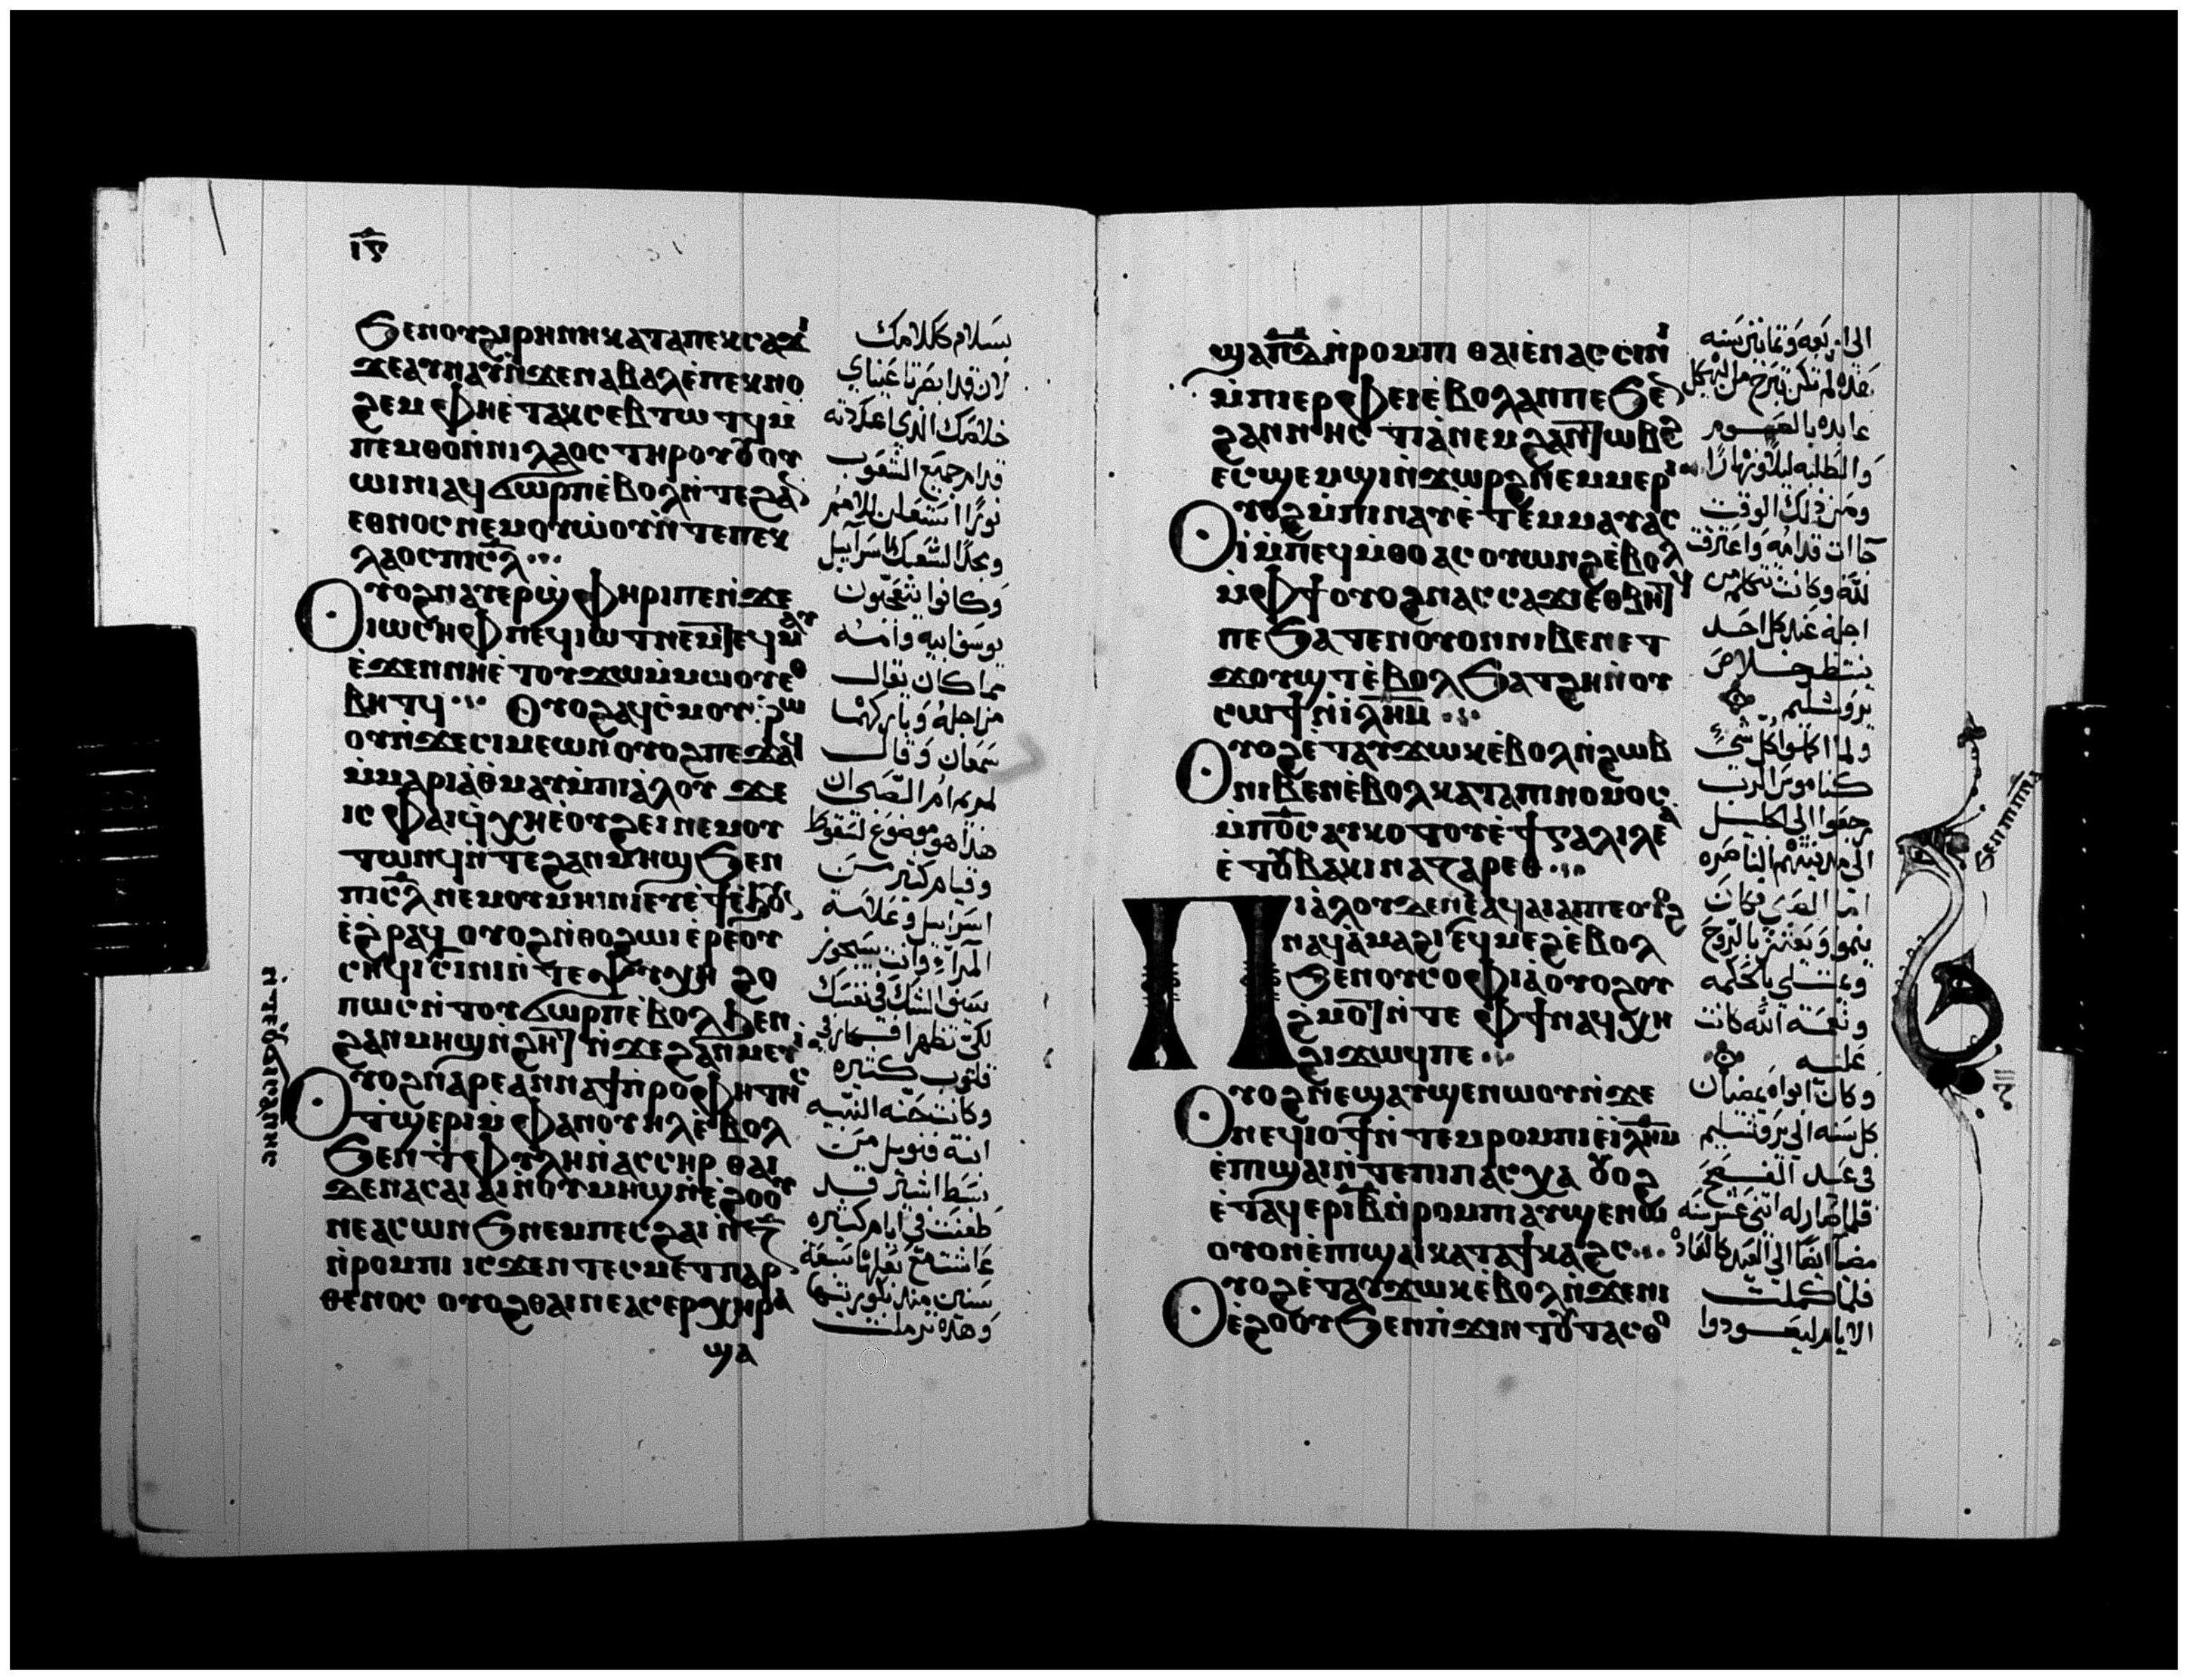 ⲓ̅ⲋ̅
ϧⲉⲛⲟⲩϩⲓⲣⲏⲛⲏⲕⲁⲧⲁⲡⲉⲕⲥⲁϫⲓ
ϫⲉⲁⲩⲛⲁⲩⲛ̀ϫⲉⲛⲁⲃⲁⲗⲉ̀ⲡⲉⲕⲛⲟ
ϩⲉⲙ ⲫⲏⲉ̀ⲧⲁⲕⲥⲉⲃⲧⲱⲧϥⲙ̀
ⲡⲉⲙⲑⲟⲛ̀ⲛⲓⲗⲁⲟⲥ ⲧⲏⲣⲟⲩ ⲟⲩⲟⲩ
ⲱⲓⲛⲓⲁϥϭⲱⲣⲡⲉ̀ⲃⲟⲗⲛ̀ⲧⲉϩⲁⲛ
ⲉⲑⲛⲟⲥ ⲛⲉⲙⲟⲩⲱ̀ⲟⲩⲛ̀ⲧⲉⲡⲉⲕ
ⲗⲁⲟⲥⲡⲓⲥ̅ⲗ̅
ⲟⲩⲟϩⲛⲁⲩⲉⲣϣⲫⲏⲣⲓⲡⲉⲛ̀ϫⲉ
ⲓⲱⲥⲏⲫⲡⲉϥⲓⲱⲧⲛⲉⲙⲧⲉϥⲙⲁⲩ
ⲉ̀ϫⲉⲛⲛⲏⲉ̀ⲧⲟⲩϫⲱⲙ̀ⲙⲱⲟⲩⲉⲑ
ⲃⲏⲧϥ ⲟⲩⲟϩⲁϥⲥⲙⲟⲩⲉⲣⲱ
ⲟⲩⲛ̀ϫⲉⲥⲓⲙⲉⲱⲛ ⲟⲩⲟϩⲡⲉϫⲁϥ
ⲙ̀ⲙⲁⲣⲓⲁ̀ⲑ̀ⲙⲁⲩⲙ̀ⲡⲓⲁ̀ⲗⲟⲩ ϫⲉ
ⲓⲥ ⲫⲁⲓϥⲭⲏⲉ̀ⲟⲩϩⲉⲓⲛⲉⲙⲟⲩ
ⲧⲱⲛϥⲛ̀ⲧⲉϩⲁⲛⲙⲏϣ ϧⲉⲛ
ⲡⲓⲥ̅ⲗ̅ ⲛⲉⲙⲟⲩⲙⲏⲓⲛⲓⲉⲩϯⲉ̀ϧⲟⲩⲛ
ⲉ̀ϩⲣⲁϥ ⲟⲩⲟϩⲛ̀ⲑⲟϩⲱⲓ ⲉ̀ⲣⲉⲟⲩ
ⲥⲏϥⲓⲥ̀ⲓⲛⲓⲛ̀ⲧⲉⲯⲩⲭⲏ ϩⲟ
ⲡⲱⲥⲛ̀ⲧⲟⲩϭⲱⲣⲡⲉ̀ⲃⲟⲗϧⲉⲛ
ϩⲁⲛⲙⲏϣⲛ̀ϩⲏⲧ ⲛ̀ϫⲉϩⲁⲛⲙⲉⲩⲓ
ⲟⲩⲟϩⲛⲁⲣⲉⲁⲛⲛⲁϯⲡⲣⲟⲫⲏⲧⲏⲥ
ⲧ̀ϣⲉⲣⲓⲙ̀ⲫⲁⲛⲟⲩⲏⲗⲉ̀ⲃⲟⲗ
ϧⲉⲛⲧⲫⲩⲗⲏⲛ̀ⲁⲥⲥⲏⲣ ⲑⲁⲓ
ϫⲉⲛⲁⲥⲁⲓⲁⲓⲛ̀ⲟⲩⲙⲏϣⲛ̀ⲉ̀ϩⲟⲟⲩ
ⲛⲉⲁⲥⲱⲛϧ ⲛⲉⲙⲡⲉⲥϩⲁⲓ ⲛ̀ⲍ̅
ⲛ̀ⲣⲟⲙⲡⲓ ⲓⲥϫⲉⲛ ⲧⲉⲥⲙⲉⲧⲡⲁⲣ
ⲑⲉⲛⲟⲥ ⲟⲩⲟϩⲑⲁⲓⲛⲉⲁⲥⲉⲣⲭⲏⲣⲁ
ϣⲁ
بسلام كلامك
لان قد ابصرتا عيناي
خلاصك الذي اعددته
قدام جميع الشعوب
نورًا استعلن للامم
ومجدًا لشعبك اسراييل
وكانوا يتعجبون
يوسف ابيه وامه
مما كان يقال
من اجله وباركهما
سمعان وقال
لمريم ام الصبي
هذا هو موضوع لسقوط
وقيام كثير من
اسراييل وعلامة
لكي تظهر افكار في
قلوب كثيره
وكانت حنه النبيه
ابنة فنوييل من
سبط اشير قد
طعنت في ايام كثيره
عاشت مع بعلها سبعة
سنين منذ بكوريتها
وهذه ترملت
ϣⲁⲡ̅ⲇ̅ⲛ̀ⲣⲟⲙⲡⲓ ⲑⲁⲓⲉ̀ⲛⲁⲥⲥⲓⲛⲓ
ⲙ̀ⲡⲓⲉⲣⲫⲉⲓⲉ̀ⲃⲟⲗⲁⲛⲡⲉ ϧⲉⲛ
ϩⲁⲛⲛⲏⲥⲧⲓⲁ̀ⲛⲉⲙϩⲁⲛⲧⲱⲃϩ
ⲉⲥϣⲉⲙϣⲓⲛ̀ϫⲱⲣϩ ⲛⲉⲙⲙⲉⲣⲓ
ⲟⲩⲟϩⲙ̀ⲡⲓⲛⲁⲩⲉ̀ⲧⲉⲙⲙⲁⲩⲁⲥ
ⲓ̀ⲙ̀ⲡⲉϥⲙ̀ⲑⲟ ⲁⲥⲟⲩⲱⲛϩⲉ̀ⲃⲟⲗ
ⲙ̀ⲫϯ ⲟⲩⲟϩⲛⲁⲥⲥⲁϫⲓⲉⲑⲃⲏⲧϥ
ⲡⲉ ϧⲁⲧⲉⲛⲟⲩⲟⲛⲛⲓⲃⲉⲛⲉⲧ
ϫⲟⲩϣⲧⲉ̀ⲃⲟⲗ ϧⲁⲧϩⲏⲛ̀ⲟⲩ
ⲥⲱϯⲛ̀ⲓⲗ̅ⲏ̅ⲙ̅
ⲟⲩⲟϩⲉ̀ⲧⲁⲩϫⲱⲕⲉ̀ⲃⲟⲗⲛ̀ϩⲱⲃ
ⲛⲓⲃⲉⲛⲉ̀ⲃⲟⲗⲕⲁⲧⲁⲡⲓⲛⲟⲙⲟⲥ
ⲙ̀ⲡⲟ̅ⲥ̅ ⲁⲩⲕⲟⲧⲟⲩⲉ̀ϯⲅⲁⲗⲓⲗⲉⲁ
ⲉ̀ⲧⲟⲩⲃⲁⲕⲓⲛⲁⲍⲁⲣⲉⲑ
ⲡⲓⲁ̀ⲗⲟⲩ ϫⲉⲛⲉⲁϥⲁⲓⲁⲓⲡⲉⲟⲩⲟϩ
ⲛⲁϥⲁ̀ⲙⲁϩⲓⲉϥⲙⲉϩⲉ̀ⲃⲟⲗ
ϧⲉⲛⲟⲩⲥⲟⲫⲓⲁ̀ ⲟⲩⲟϩⲟⲩ
ϩⲙⲟⲧⲛ̀ⲧⲉ ⲫϯⲛⲁϥⲭⲏ
ϩⲓϫⲱϥⲡⲉ
ⲟⲩⲟϩⲛⲉϣⲁⲩϣⲉⲛⲱⲟⲩⲛ̀ϫⲉ
ⲛⲉϥⲓⲟϯⲛ̀ⲧⲉⲙⲣⲟⲙⲡⲓⲉ̀ⲓⲗ̅ⲏ̅ⲙ̅
ⲉ̀ⲡϣⲁⲓⲛ̀ⲧⲉⲡⲓⲡⲁⲥⲭⲁ ⲟⲩⲟϩ
ⲉ̀ⲧⲁϥⲉⲣⲓ̅ⲃ̅ⲛ̀ⲣⲟⲙⲡⲓⲁⲩϣⲉⲛⲱ
ⲟⲩⲟⲛⲉ̀ⲡϣⲁⲓⲕⲁⲧⲁϯⲕⲁϩⲥ
ⲟⲩⲟϩⲉ̀ⲧⲁⲩϫⲱⲕⲉ̀ⲃⲟⲗⲛ̀ϫⲉⲛⲓ
ⲉ̀ϩⲟⲟⲩ ϧⲉⲛⲡϫⲓⲛⲧⲟⲩⲧⲁⲥⲑⲟ
الى اربعه وثمانين سنه
هذه لم تكن تبرح من الهيكل
عابده بالصوم
والطلبه ليلا ونهارًا
ومن ذلك الوقت
جاات قدامه واعترفت
لله وكانت تتكلم من
اجله عند كل احد
ينتظر خلاص
يروشليم
ولما اكملوا كل شيٍ
كناموس الرب
رجعوا الى الجليل
الى مدينتهم الناصره
اما الصبي فكان
ينموا ويعتز بالروح
وممتلي بالحكمه
ونعمة الله كانت
عليه
وكان ابواه يمضيان
كل سنه الى يروشليم
في عيد الفصح
فلما صار له اثنى عشر سنه
مضيا ايضا الى العيد كالعاده
فلما كملت
الايام ليعودوا